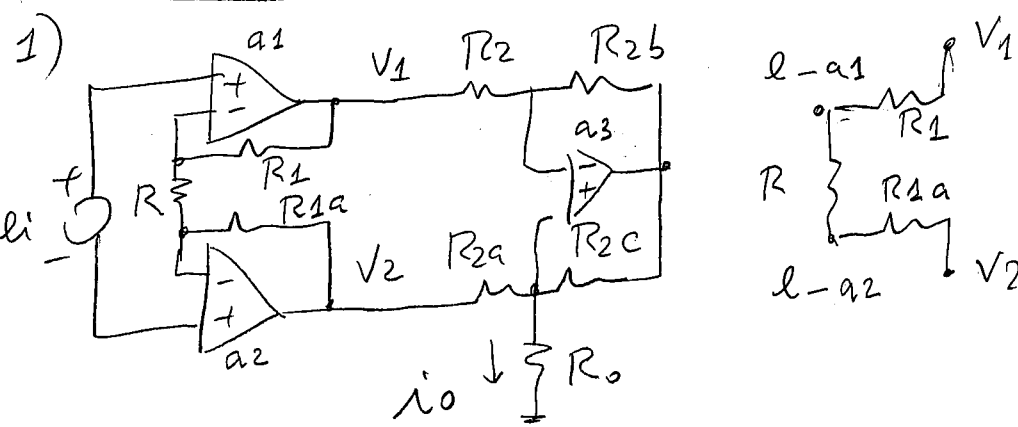 1)
a1
V1
R2
R2b
+
-
R1
a3
-
+
ei
+
-
R
R1a
V2
R2a
R2c
-
+
a2
io
Ro
e-a1
V1
R1
R
R1a
e-a2
V2